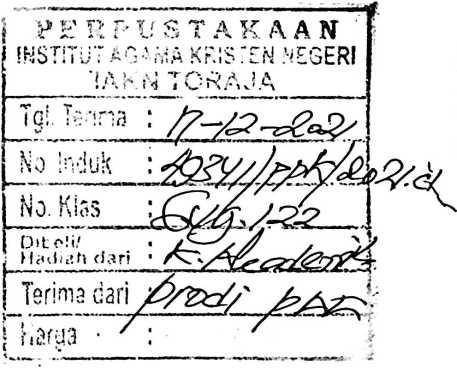 PERPUSTAKAAN
INSTITUT AGAMA KRISTEN NEGERI
IAKN TORAJA
Tgl. Terima : 17-12-2021
No. Induk :
No. Klas :
Dibeli/
Hadiah dari : K. Akademik
Terima dari : prodi PAK
Harga :